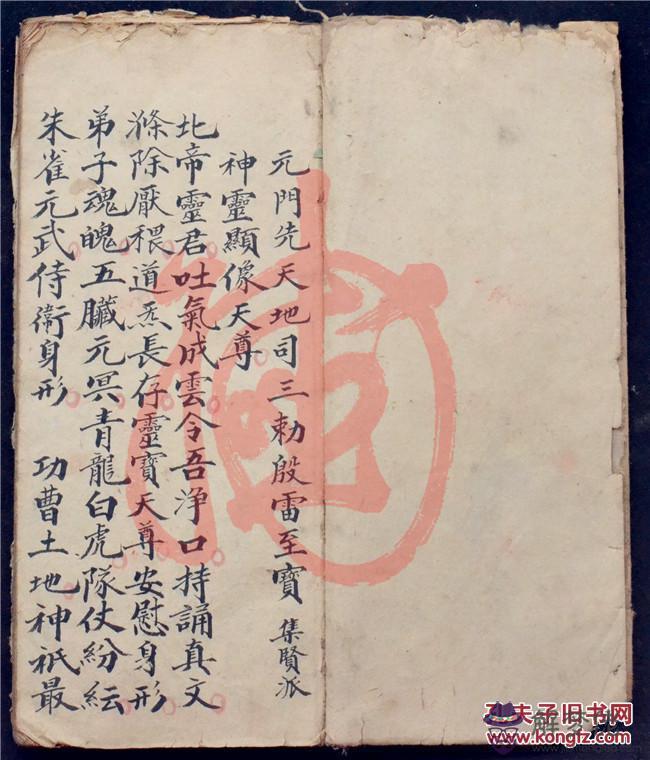 元門先天地司三勅殷雷至寶 集賢派
神靈顯像天尊
北帝靈君吐氣成雲令吾浄口持誦真文
滌除厭穢道炁長存靈寶天尊安慰身形
弟子魂魄五臟元冥青龍白虎隊仗紛紜
朱雀元武侍衛身形 功曹土地神祇最
孔夫子旧书网
www.kongfz.com
解梦